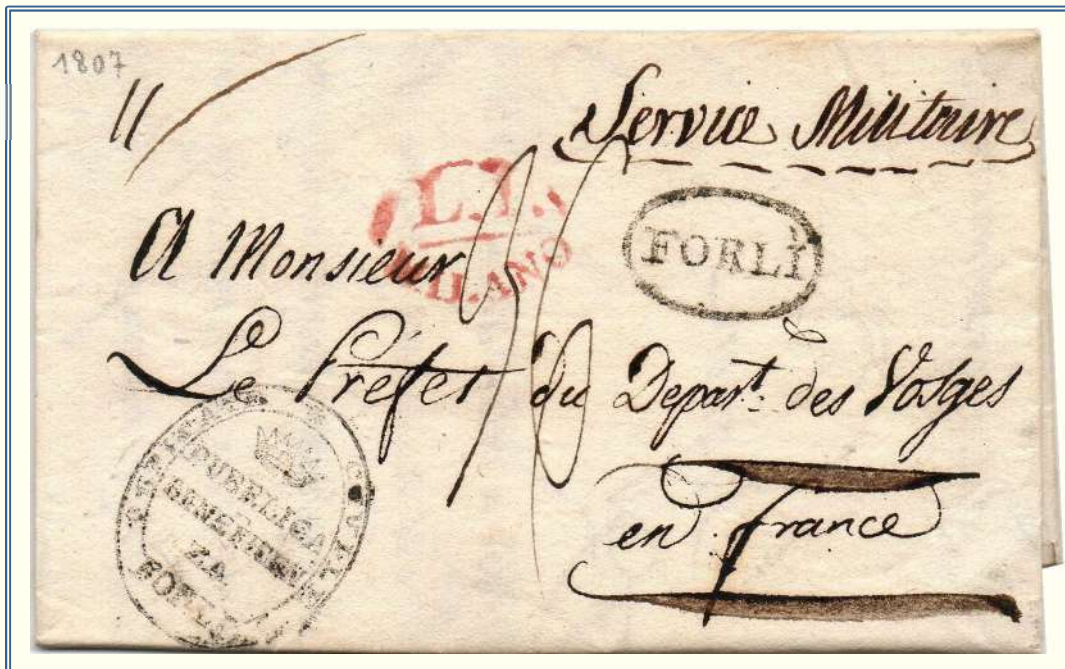 1807
11
Service Militaire
L.I.
MILANO
FORLÌ
A Monsieur
Le Préfet du Depart.t des Vosges
en france
PUBBLICA
BENEFICEN
ZA
FORLI